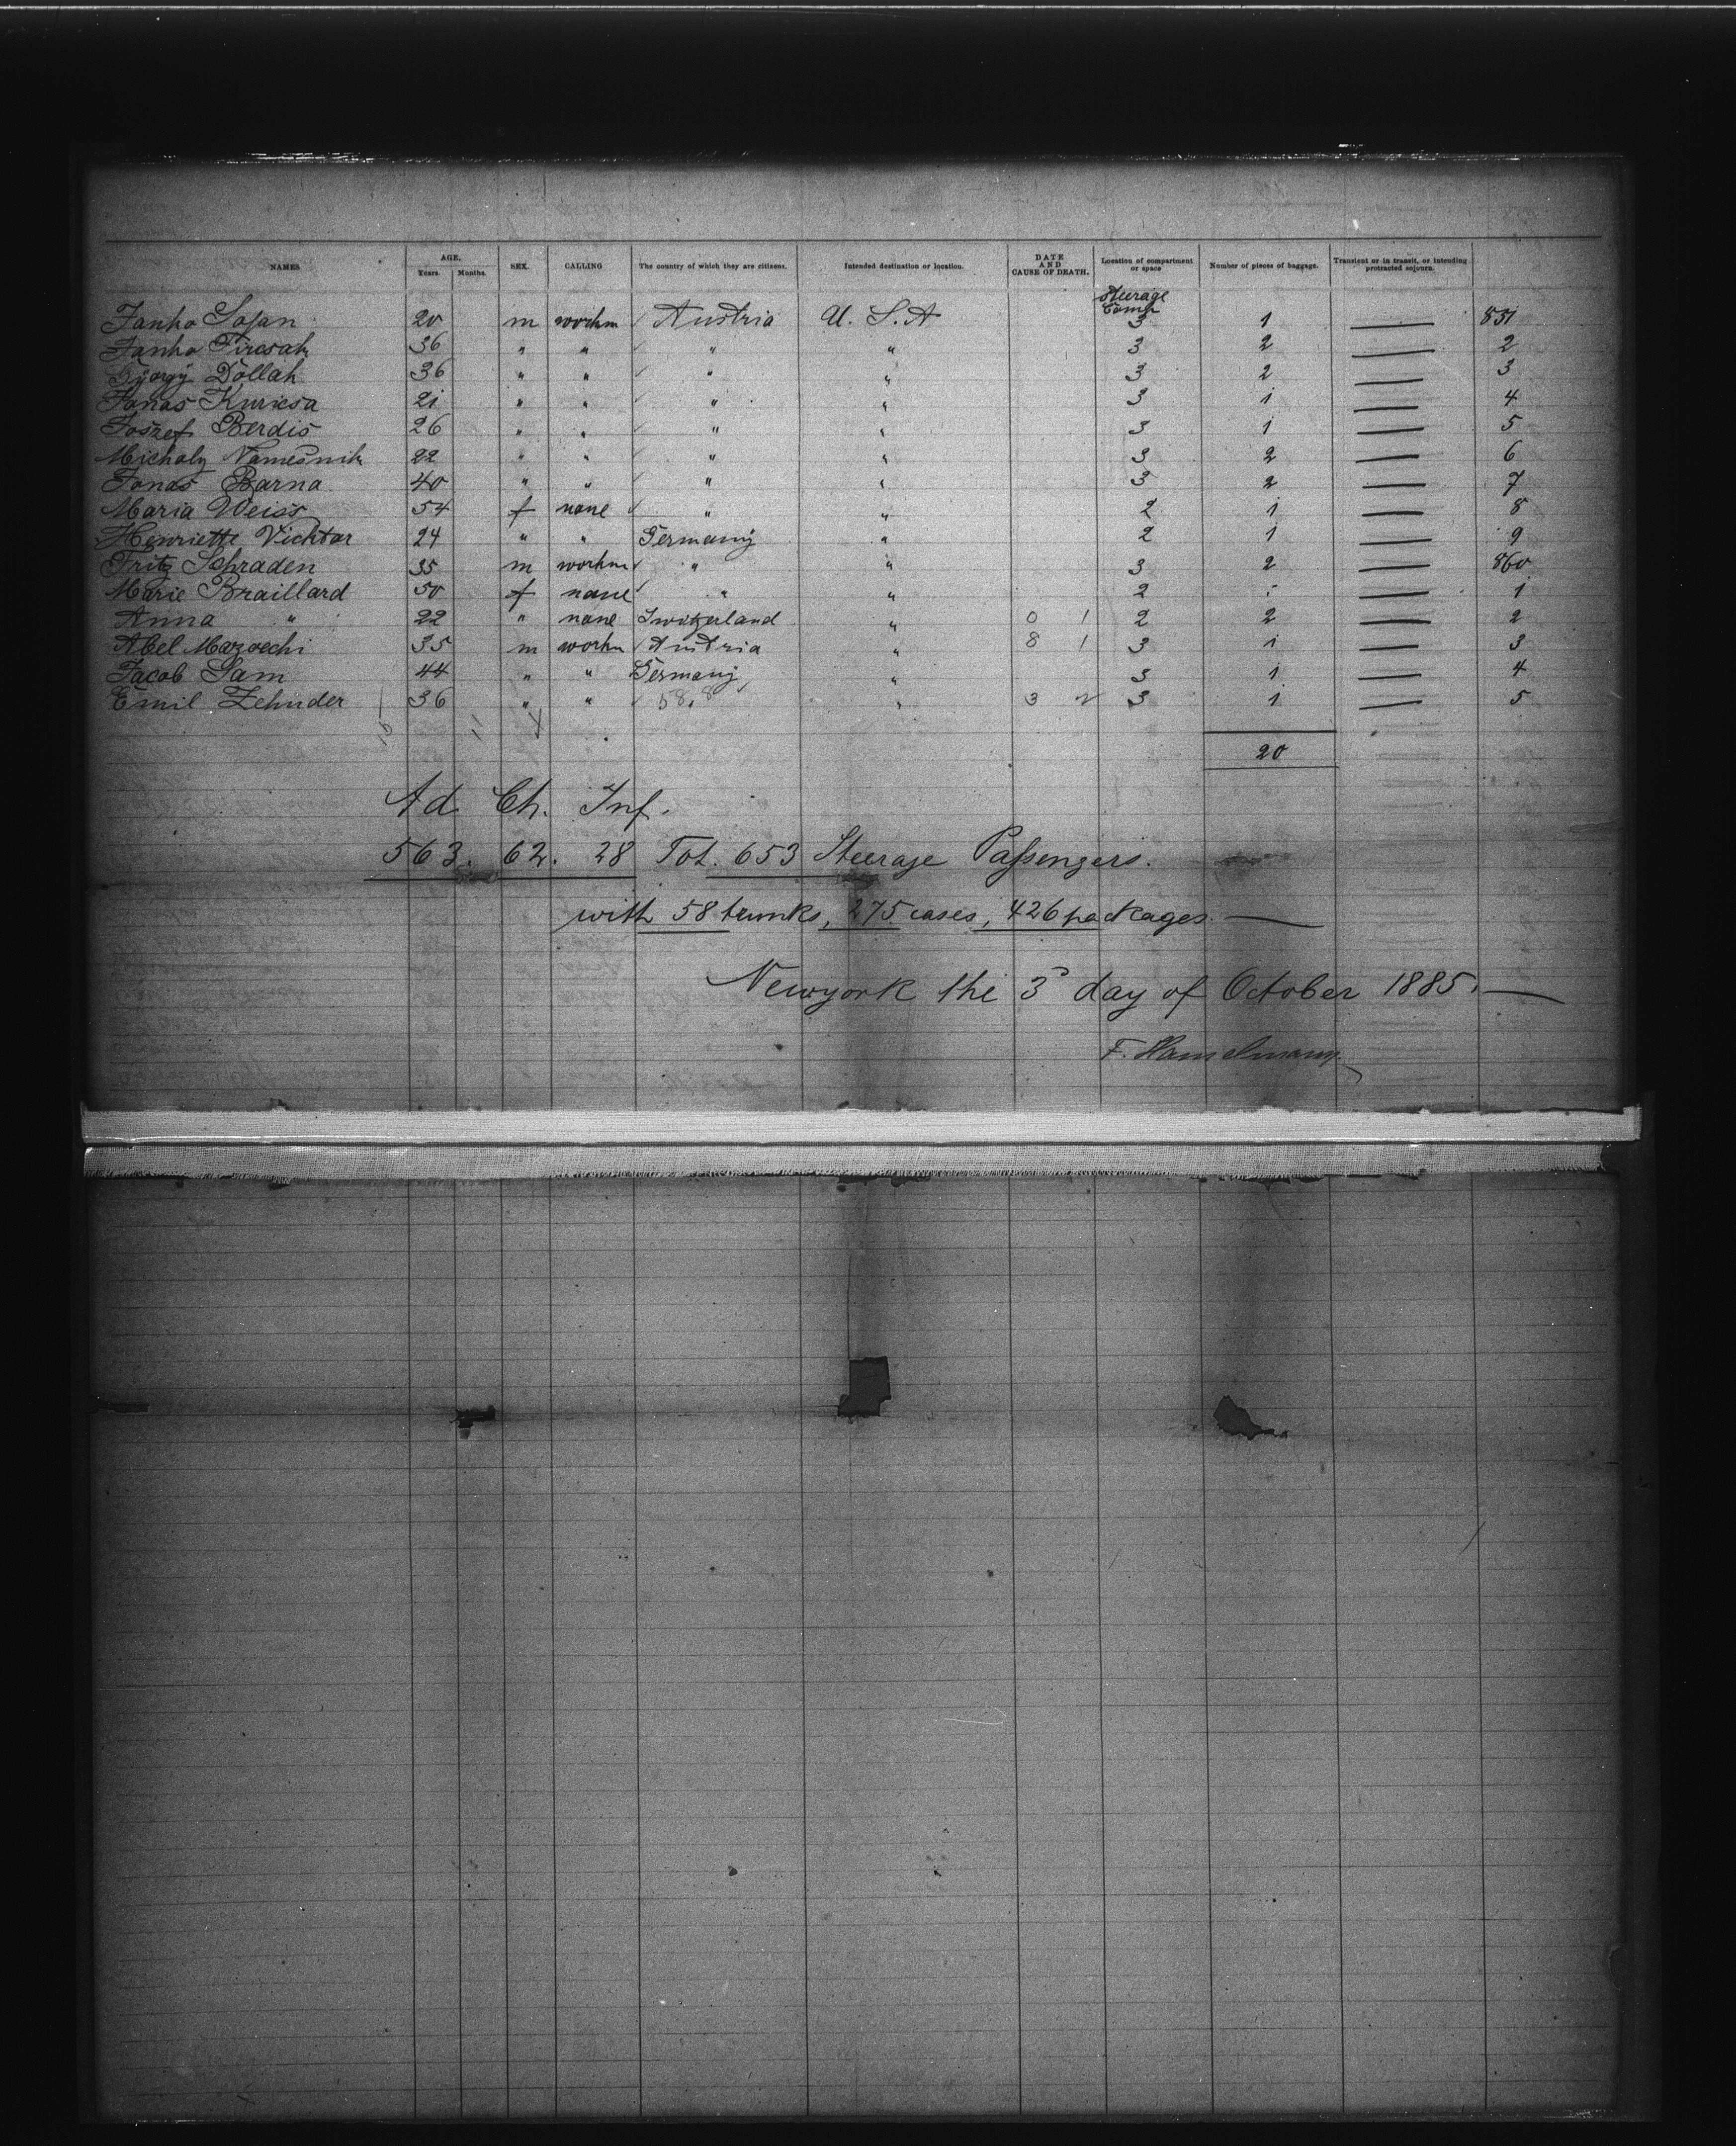 NAMES AGE. Years. Months. SEX. CALLING The country of which they are citizens. Intended destination or location. DATE AND CAUSE OF DEATH. Location of compartment or space Number of pieces of baggage. Transient or in transit, or intending protracted sojourn.
Steerage Comp
Janko Sojan 20 m workm Austria U. S. A 3 1 — 851
Janko Tircsak 36 " " " " 3 2 — 2
György Dollak 36 " " " " 3 2 — 3
Janos Kuricsa 21 " " " " 3 1 — 4
Joszef Berdis 26 " " " " 3 1 — 5
Michaly Namesnik 22 " " " " 3 2 — 6
Janos Barna 40 " " " " 3 2 — 7
Maria Weiss 54 f none " " 2 1 — 8
Henriette Vichtor 24 " " Germany " 2 1 — 9
Fritz Schraden 35 m workm " " 3 2 — 860
Marie Braillard 50 f none " " 2 — 1
Anna " 22 " none Switzerland " 0 1 2 2 — 2
Abel 35 m workm Austria " 8 1 3 1 — 3
Jacob Sam 44 " " Germany " 3 1 — 4
Emil Zehnder 36 " " 58.8 " 3 2 3 1 — 5
20
Ad Ch. Inf.
563. 62. 28 Tot. 653 Steerage Passengers.
with 58 trunks, 275 cases, 426 packages. —
Newyork the 3d day of October 1885. —
F. Hamelmann